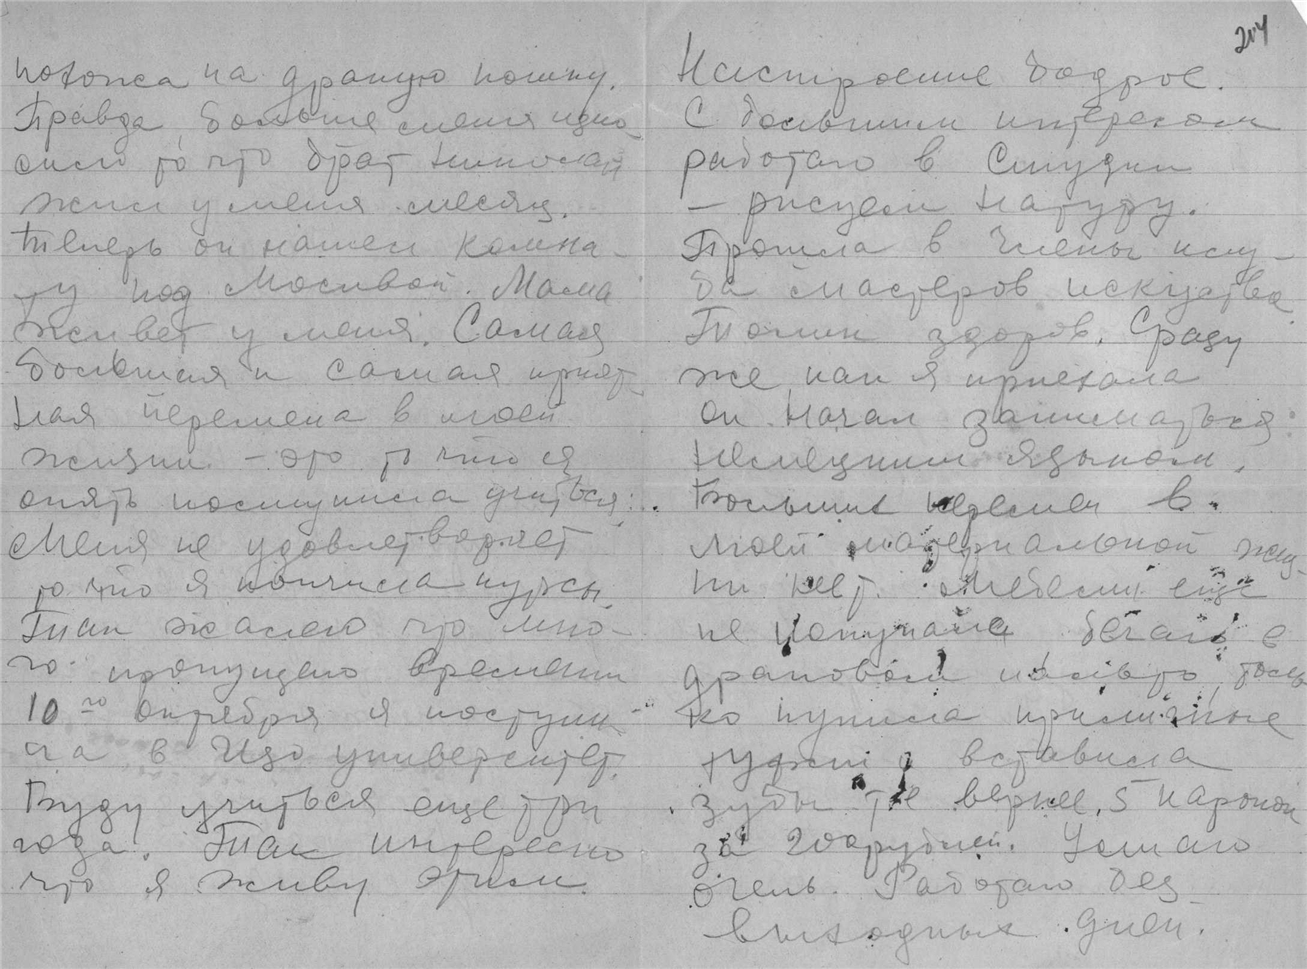 похожа на драную кошку.
Правда, больше меня изно-
сило то что брат Николай
жил у меня месяц.
Теперь он нашел комна-
ту под Москвой. Мама
живет у меня. Самая
большая и самая прият-
ная перемена в моей
жизни – это то что я
опять поступила учиться.
Меня не удовлетворяет
то что я кончила курсы.
Так жалею что мно-
го пропущено времени
10го октября я поступи-
ла в Изо университет.
Буду учиться еще три
года. Так интересно
что я живу этим.
204
Настроение бодрое.
С большим интересом
работаю в Студии
– рисуем натуру.
Прошла в члены клу-
ба мастеров искуства
Толик здоров. Сразу
же как я приехала
он начал заниматься
немецким языком.
Больших перемен в
моей материальной жиз-
ни нет. Мебели еще
не купила бегаю в
драповом пальто, толь
ко купила приличные
туфли и вставила
зубы те верхн. 5 коронок
за 200 рублей. Устаю
очень. Работаю без
выходных дней.